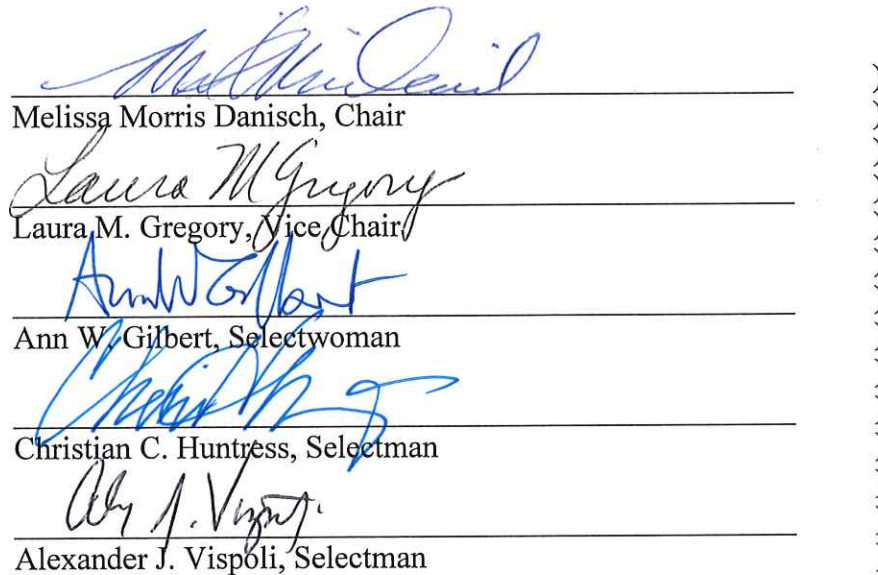 Melissa Morris Danisch, Chair
Laura M Gregory
Laura M. Gregory, Vice Chair
Ann W Gilbert
Ann W. Gilbert, Selectwoman
Christian C. Huntress, Selectman
Alexander J. Vispoli, Selectman